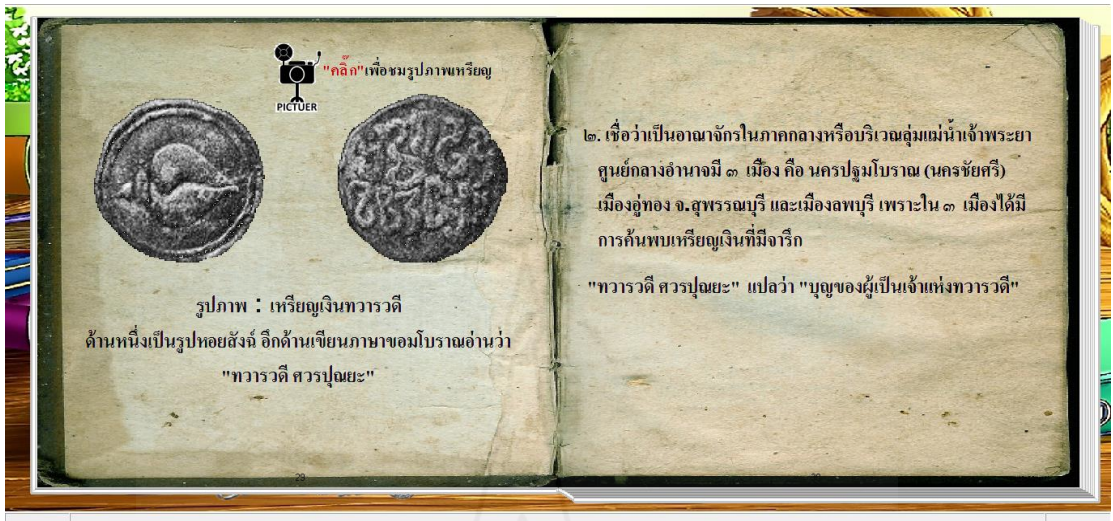 "คลิ๊ก"เพื่อชมรูปภาพเหรียญ
PICTUER
รูปภาพ : เหรียญเงินทวารวดี
ด้านหนึ่งเป็นรูปหอยสังฉ์ อีกด้านเขียนภาษาขอมโบราณอ่านว่า
"ทวารวดี ศวรปุณยะ"
29
๒. เชื่อว่าเป็นอาณาจักรในภาคกลางหรือบริเวณลุ่มแม่น้ำเจ้าพระยา
ศูนย์กลางอำนาจมี ๓ เมือง คือ นครปฐมโบราณ (นครชัยศรี)
เมืองอู่ทอง จ.สุพรรณบุรี และเมืองลพบุรี เพราะใน ๓ เมืองได้มี
การค้นพบเหรียญเงินที่มีจารึก
"ทวารวดี ศวรปุณยะ" แปลว่า "บุญของผู้เป็นเจ้าแห่งทวารวดี"